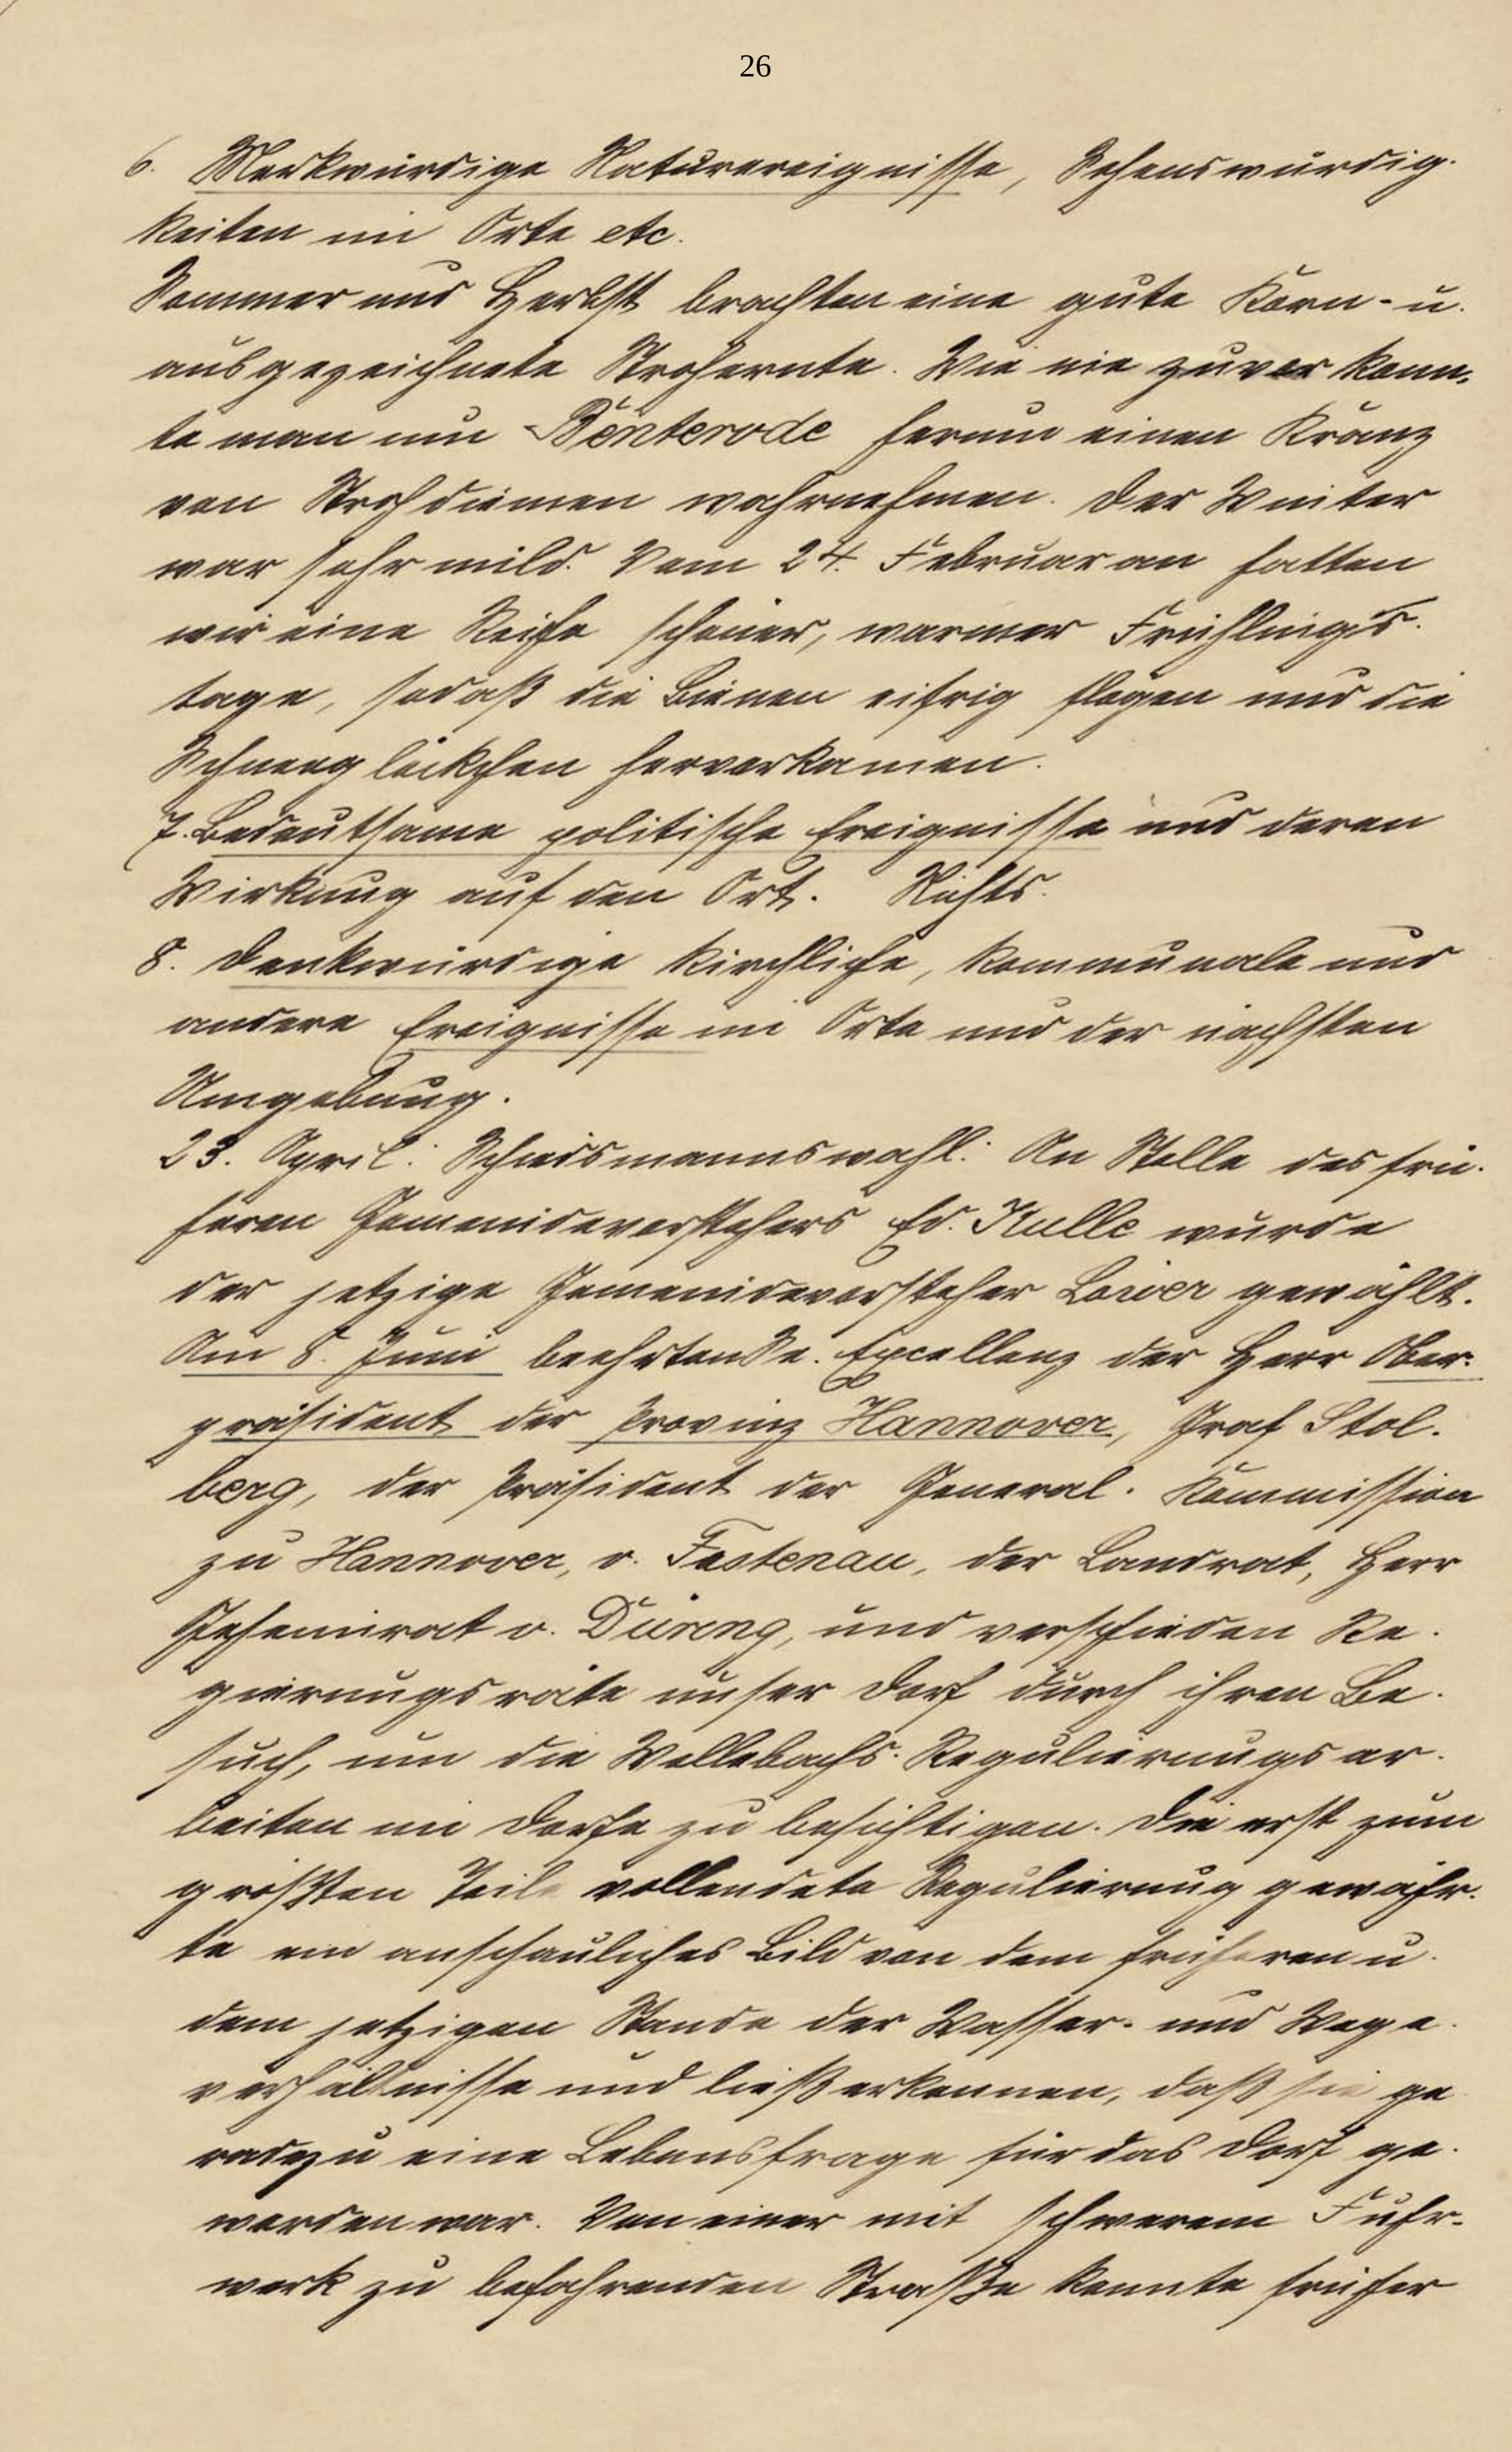 26
6. Merkwürdige Naturereignisse, Sehenswürdig-
keiten im Orte etc.
Sommer und Herbst brachten eine gute Korn- u.
ausgezeichnete Strohernte. Wie nie zuvor konn-
te man um Benterode herum einen Kranz
von Strohdiemen wahrnehmen. Der Winter
war sehr mild. Vom 24. Februar an hatten
wir eine Reihe schöner, warmer Frühlings-
tage, sodaß die Bienen eifrig flogen und die
Schneeglöckchen hervorkamen.
7. Bedeutsame politische Ereignisse und deren
Wirkung auf den Ort. Nichts.
8. Denkwürdige kirchliche, kommunale und
andere Ereignisse im Orte und der nächsten
Umgebung.
23. April: Schiedsmannswahl. An Stelle des frü-
heren Gemeindevorstehers Ed. Kulle wurde
der jetzige Gemeindevorsteher gewählt.
Am 8. Juni beehrten Se. Excellenz der Herr Ober-
präsident der Provinz Hannover, Graf Stol-
berg, der Präsident der General-Kommission
zu Hannover, v. der Landrat, Herr
Geheimrat v. Düring, und verschieden Re-
gierungsräte unser Dorf durch ihren Be-
such, um die Wellebachs-Regulierungsar-
beiten im Dorfe zu besichtigen. Die erst zum
größten Teile vollendete Regulierung gewähr-
te ein anschauliches Bild von dem früheren u.
dem jetzigen Stande der Wasser- und Wege-
verhältnisse und ließ erkennen, daß sie ge
radezu eine Lebensfrage für das Dorf ge-
worden war. Von einer mit schwerem Fuhr-
werk zu befahrenden Straße konnte früher